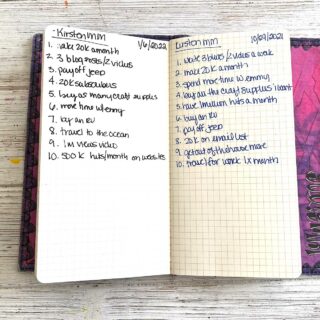 -Kirsten mm 1/6/2022
1. make 20K a month
2. 3 blog posts/2 videos
3. pay off jeep
4. 20K subscribers
5. buy as many craft supplies
6. more time w/emmy
7. buy an RV
8. travel to the ocean
9. 1m views video
10. 500K hits/month on websites
Kirsten mm 10/09/2021
1. make 3 blogs/2 videos a week
2. make 20K a month
3. spend more time w/emmy
4. buy all the craft supplies I want
5. have 1million hits a month
6. buy an RV
7. pay off jeep
8. 20K on email list
9. get out of the house more
10. travel for work 1x month